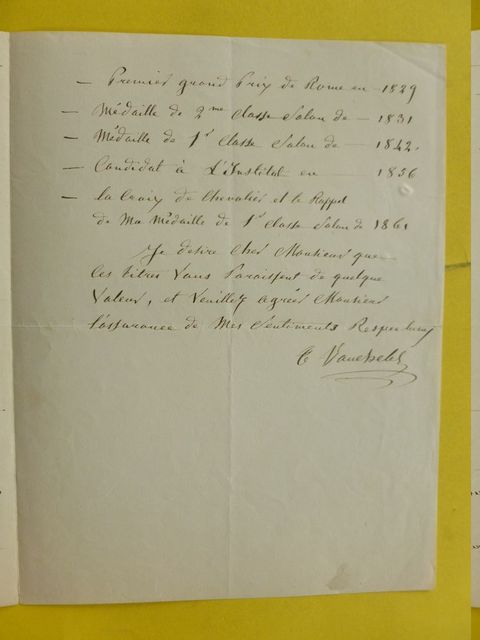 — Premier grand Prix de Rome en — 1829
— Médaille de 2me classe Salon de — 1831
— Médaille de 1re classe Salon de — 1842.
— Candidat à L'Institut en — 1856
— La Croix de Chevalier et le Rappel
de Ma Médaille de 1re classe Salon de 1861
Je desire Cher Monsieur que
Ces titres Vous Paraissent de quelque
Valeur, et Veuillez agréer Monsieur
l'assurance de Mes Sentiments Respectueux